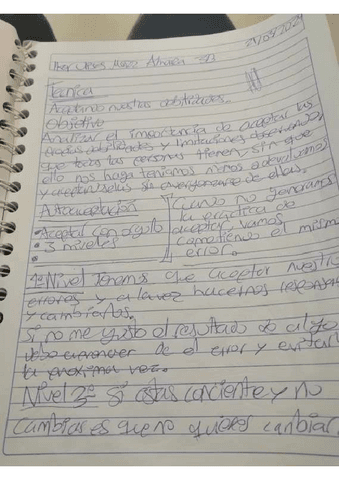 29/09/2021
Técnica
Aceptando nuestras debilidades.
Objetivo
Analizar el importancia de aceptar las
debilidades y limitaciones
que todas las personas tienen, sin que
ello nos haga tenernos menos
y aceptandolas sin avergonzarse de ellas.
Autoaceptación
• Aceptar con orgullo
• 3 niveles
•
Cuando no generamos
la práctica de
aceptar, vamos
cometiendo el mismo
error.
1º Nivel Tenemos que aceptar nuestros
errores y a la vez hacernos responsables
y cambiarlos.
Si no me gusto el resultado de algo
debo aprender de el error y evitarlo
la proxima vez.
Nivel 2º Si estas conciente y no
cambias es que no quieres cambiar.